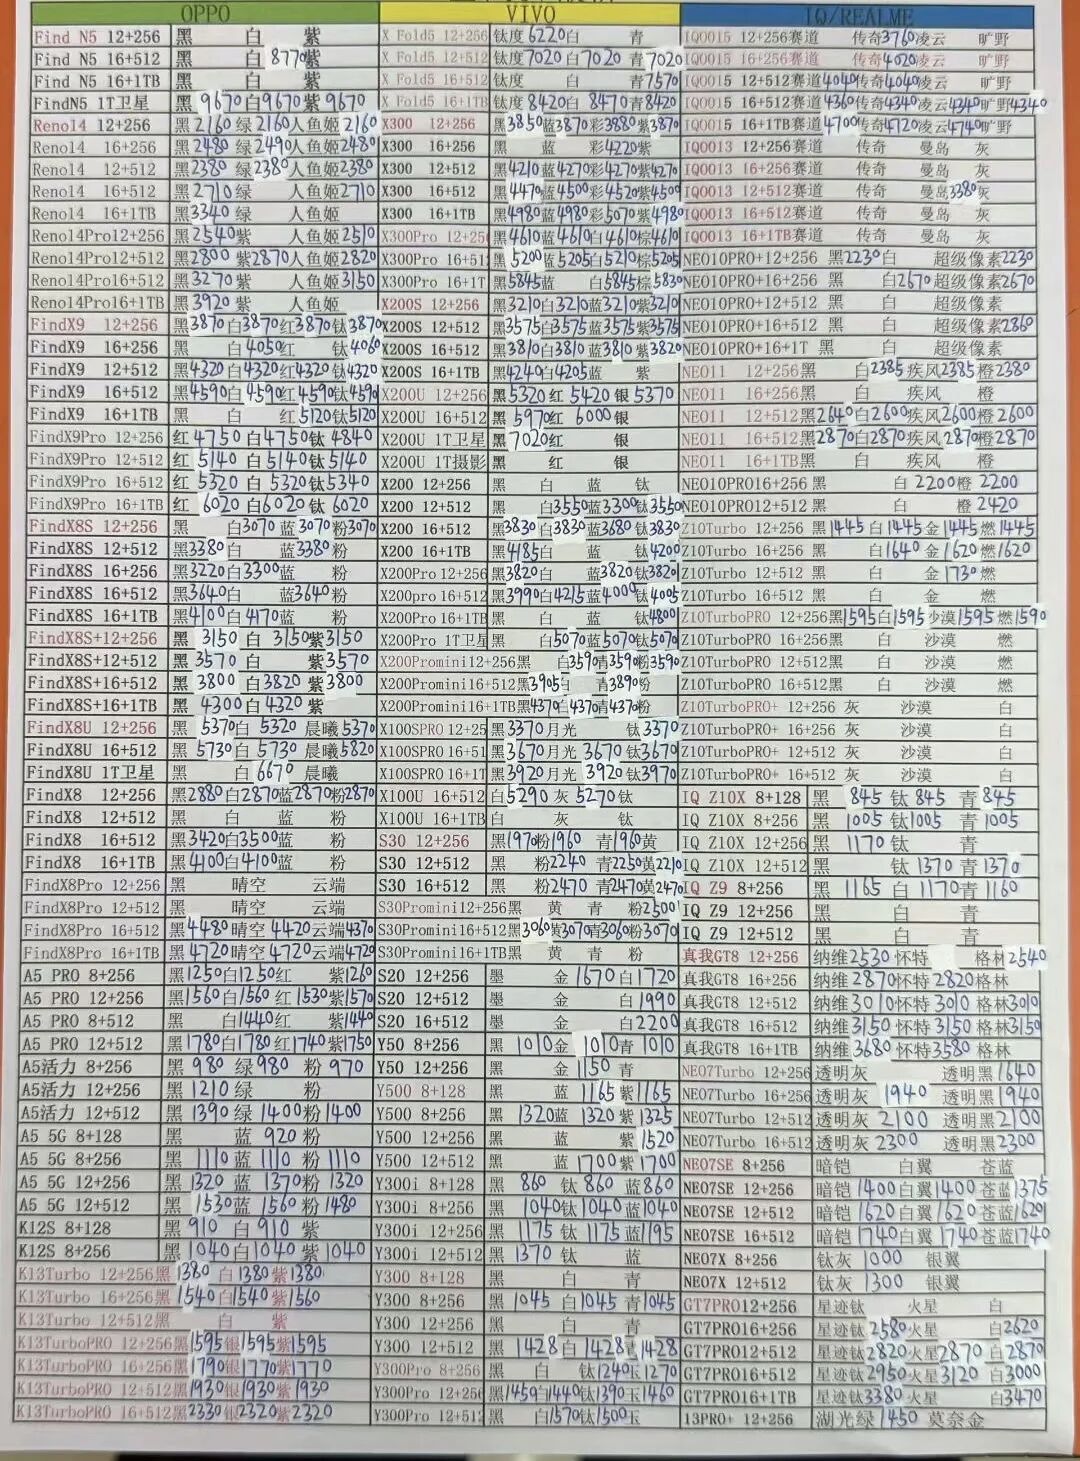 OPPO VIVO IQ/REALME
Find N5 12+256 黑 白 紫 X Fold5 12+256 钛度 6220 白 青 IQOO15 12+256赛道 传奇3760凌云 旷野
Find N5 16+512 黑 白 8770 紫 X Fold5 12+512 钛度7020 白7020 青7020 IQOO15 16+256赛道 传奇4020凌云 旷野
Find N5 16+1TB 黑 白 紫 X Fold5 16+512 钛度 白 青7570 IQOO15 12+512赛道4040传奇4040凌云 旷野
FindN5 1T卫星 黑 9670 白9670 紫 9670 X Fold5 16+1TB 钛度8420白 8470青8420 IQOO15 16+512赛道4360传奇4340凌云4340旷野4340
Reno14 12+256 黑2160 绿2160人鱼姬2160 X300 12+256 黑3850蓝3870彩3880紫3870 IQOO15 16+1TB赛道4700传奇4720凌云4740旷野
Reno14 16+256 黑2480 绿2490人鱼姬2480 X300 16+256 黑 蓝 彩4220紫 IQOO13 12+256赛道 传奇 曼岛 灰
Reno14 12+512 黑2380 绿2380人鱼姬2380 X300 12+512 黑4210蓝4270彩4270紫4270 IQOO13 16+256赛道 传奇 曼岛 灰
Reno14 16+512 黑2710绿 人鱼姬2710 X300 16+512 黑4470蓝4500彩4520紫4500 IQOO13 12+512赛道 传奇 曼岛3380灰
Reno14 16+1TB 黑3340 绿 人鱼姬 X300 16+1TB 黑4980蓝4980彩5070紫4980 IQOO13 16+512赛道 传奇 曼岛 灰
Reno14Pro12+256 黑2540紫 人鱼姬2510 X300Pro 12+256 黑4610蓝4610白4610棕4610 IQOO13 16+1TB赛道 传奇 曼岛 灰
Reno14Pro12+512 黑2800 紫2870人鱼姬2820 X300Pro 16+512 黑5200蓝5205白5210棕5205 NEO10PRO+12+256 黑2230白 超级像素2230
Reno14Pro16+512 黑3270 紫 人鱼姬3150 X300Pro 16+1T 黑5845蓝 白5845棕5830 NEO10PRO+16+256 黑 白2670超级像素2670
Reno14Pro16+1TB 黑3920 紫 人鱼姬 X200S 12+256 黑3210白3210蓝3210紫3210 NEO10PRO+12+512 黑 白 超级像素
FindX9 12+256 黑3870白3870红3870钛3870 X200S 12+512 黑3575白3575蓝3575紫3575 NEO10PRO+16+512 黑 白 超级像素2860
FindX9 16+256 黑 白4050红 钛4060 X200S 16+512 黑3810白3810蓝3810紫3820 NEO10PRO+16+1T 黑 白 超级像素
FindX9 12+512 黑4320白4320红4320钛4320 X200S 16+1TB 黑4240白4205蓝 紫 NEO11 12+256黑 白2385疾风2385橙2380
FindX9 16+512 黑4590白4590红4590钛4590 X200U 12+256 黑5320红 5420银5370 NEO11 16+256黑 白 疾风 橙
FindX9 16+1TB 黑 白 红5120钛5120 X200U 16+512 黑5970红 6000银 NEO11 12+512黑2640白2600疾风2600橙2600
FindX9Pro 12+256 红4750白4750钛4840 X200U 1T卫星 黑7020红 银 NEO11 16+512黑2870白2870疾风2870橙2870
FindX9Pro 12+512 红5140白5140钛5140 X200U 1T摄影 黑 红 银 NEO11 16+1TB黑 白 疾风 橙
FindX9Pro 16+512 红5320白5320钛5340 X200 12+256 黑 白 蓝 钛 NEO10PRO16+256 黑 白2200橙2200
FindX9Pro 16+1TB 红6020白6020钛6020 X200 12+512 黑 白3550蓝3300钛3550 NEO10PRO12+512 黑 白 橙2420
FindX8S 12+256 黑 白3070蓝3070粉3070 X200 16+512 黑3830白3830蓝3680钛3830 Z10Turbo 12+256 黑1445白1445金1445燃1445
FindX8S 12+512 黑3380白 蓝3380粉 X200 16+1TB 黑4185白 蓝 钛4200 Z10Turbo 16+256 黑 白1640金1620燃1620
FindX8S 16+256 黑3220白3300蓝 粉 X200Pro 12+256 黑3820白 蓝3820钛3820 Z10Turbo 12+512 黑 白 金1730燃
FindX8S 16+512 黑3640白 蓝3640粉 X200pro 16+512 黑3990白4215蓝4000钛4005 Z10Turbo 16+512 黑 白 金 燃
FindX8S 16+1TB 黑4100白4170蓝 粉 X200Pro 16+1TB 黑 白 蓝 钛4800 Z10TurboPRO 12+256黑1595白1595沙漠1595燃1590
FindX8S+12+256 黑 3150 白 3150紫3150 X200Pro 1T卫星 黑 白5070蓝5070钛5070 Z10TurboPRO 16+256黑 白 沙漠 燃
FindX8S+12+512 黑 3570 白 紫3570 X200Promini12+256黑 白3590青3590粉3590 Z10TurboPRO 12+512黑 白 沙漠 燃
FindX8S+16+512 黑 3800 白3820 紫3800 X200Promini16+512黑3905白 青3890粉 Z10TurboPRO 16+512黑 白 沙漠 燃
FindX8S+16+1TB 黑 4300白4320紫 X200Promini16+1TB黑4370白4370青4370粉 Z10TurboPRO+ 12+256 灰 沙漠 白
FindX8U 12+256 黑 5370白 5320 晨曦5370 X100SPRO 12+25 黑3370月光 钛3370 Z10TurboPRO+ 16+256 灰 沙漠 白
FindX8U 16+512 黑 5730白 5730 晨曦5820 X100SPRO 16+51 黑3670月光 3670钛3670 Z10TurboPRO+ 12+512 灰 沙漠 白
FindX8U 1T卫星 黑 白6670晨曦 X100SPRO 16+1T 黑3920月光 3920钛3970 Z10TurboPRO+ 16+512 灰 沙漠 白
FindX8 12+256 黑2880白2870蓝2870粉2870 X100U 16+512 白5290灰 5270钛 IQ Z10X 8+128 黑 845 钛845 青845
FindX8 12+512 黑 白 蓝 粉 X100U 16+1TB 白 灰 钛 IQ Z10X 8+256 黑 1005钛1005 青1005
FindX8 16+512 黑3420白3500蓝 粉 S30 12+256 黑1970粉1960 青1960黄 IQ Z10X 12+256 黑 1170钛 青
FindX8 16+1TB 黑4100白4100蓝 粉 S30 12+512 黑 粉2240青2250黄2210 IQ Z10X 12+512 黑 钛1370青1370
FindX8Pro 12+256 黑 晴空 云端 S30 16+512 黑 粉2470青2470黄2470 IQ Z9 8+256 黑 1165 白1170青1160
FindX8Pro 12+512 黑 晴空 云端 S30Promini12+256黑 黄 青 粉2500 IQ Z9 12+256 黑 白 青
FindX8Pro 16+512 黑4480晴空4420云端4370 S30Promini16+512黑3060黄3070青3060粉3070 IQ Z9 12+512 黑 白 青
FindX8Pro 16+1TB 黑4720晴空4720云端4720 S30Promini16+1TB黑 黄 青 粉 真我GT8 12+256 纳维2530怀特 格林2540
A5 PRO 8+256 黑1250白1250红 紫1260 S20 12+256 墨 金1670白1720 真我GT8 16+256 纳维2870怀特2820格林
A5 PRO 12+256 黑1560白1560红1530紫1570 S20 12+512 墨 金 白1990 真我GT8 12+512 纳维3010怀特3010格林3010
A5 PRO 8+512 黑 白1440红 紫1440 S20 16+512 墨 金 白2200 真我GT8 16+512 纳维3150怀特3150格林3150
A5 PRO 12+512 黑1780白1780红1740紫1750 Y50 8+256 黑 1010金 1010青1010 真我GT8 16+1TB 纳维3680怀特3580格林
A5活力 8+256 黑 980 绿980 粉 970 Y50 12+256 黑 金1150青 NEO7Turbo 12+256透明灰 透明黑1640
A5活力 12+256 黑1210绿 粉 Y500 8+128 黑 蓝1165紫1165 NEO7Turbo 16+256透明灰 1940 透明黑1940
A5活力 12+512 黑1390绿1400粉1400 Y500 8+256 黑 1320蓝1320紫1325 NEO7Turbo 12+512透明灰2100 透明黑2100
A5 5G 8+128 黑 蓝920粉 Y500 12+256 黑 蓝 紫1520 NEO7Turbo 16+512透明灰2300 透明黑2300
A5 5G 8+256 黑 1110蓝1110粉1110 Y500 12+512 黑 蓝1700紫1700 NEO7SE 8+256 暗铠 白翼 苍蓝
A5 5G 12+256 黑 1320蓝1370粉1320 Y300i 8+128 黑 860 钛860 蓝860 NEO7SE 12+256 暗铠1400白翼1400苍蓝1375
A5 5G 12+512 黑 1530蓝 1560粉1480 Y300i 8+256 黑 1040钛1040蓝1040 NEO7SE 12+512 暗铠1620白翼1620苍蓝1620
K12S 8+128 黑 910 白910 紫 Y300i 12+256 黑 1175钛1175蓝1195 NEO7SE 16+512 暗铠1740白翼1740苍蓝1740
K12S 8+256 黑1040白1040紫1040 Y300i 12+512 黑 1370钛 蓝 NEO7X 8+256 钛灰 1000 银翼
K13Turbo 12+256黑1380 白1380紫1380 Y300 8+128 黑 白 青 NEO7X 12+512 钛灰 1300 银翼
K13Turbo 16+256黑1540白1540紫1560 Y300 8+256 黑 1045白1045青1045 GT7PRO12+256 星迹钛 火星 白
K13Turbo 12+512黑 白 紫 Y300 12+256 黑 白 青 GT7PRO16+256 星迹钛2580火星 白2620
K13TurboPRO 12+256黑1595银1595紫1595 Y300 12+512 黑 1428白1428青1428 GT7PRO12+512 星迹钛2820火星2870白2870
K13TurboPRO 16+256黑1790银1770紫1770 Y300Pro 8+256 黑 白 钛1240玉1270 GT7PRO16+512 星迹钛2950火星3120白3000
K13TurboPRO 12+512黑1930银1930紫1930 Y300Pro 12+256 黑1459白1440钛1390玉1460 GT7PRO16+1TB 星迹钛3380火星 白3470
K13TurboPRO 16+512黑2330银2320紫2320 Y300Pro 12+512 黑 白1570钛1500玉 13PRO+ 12+256 湖光绿1450 莫奈金